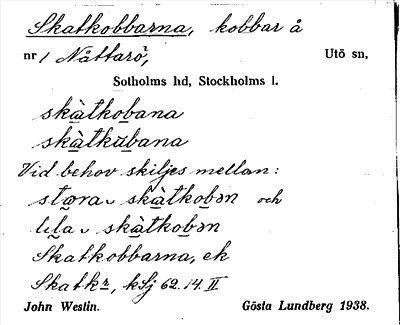 Skatkobbarna, kobbar å
nr 1 Nåttarö, Utö sn,
Sotholms hd, Stockholms l.
skàtkobana
skàtkubana
Vid behov skiljes mellan:
stæra ~ skàtkobən och
lila ~ skàtkobən
Skatkobbarna, ek
Skatkr, kSj 62.14.II.
John Westin. Gösta Lundberg 1938.